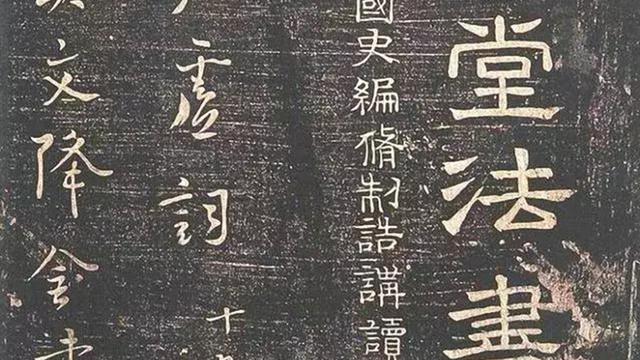 堂法書
國史編脩制誥講讀
虛詞
十
文降